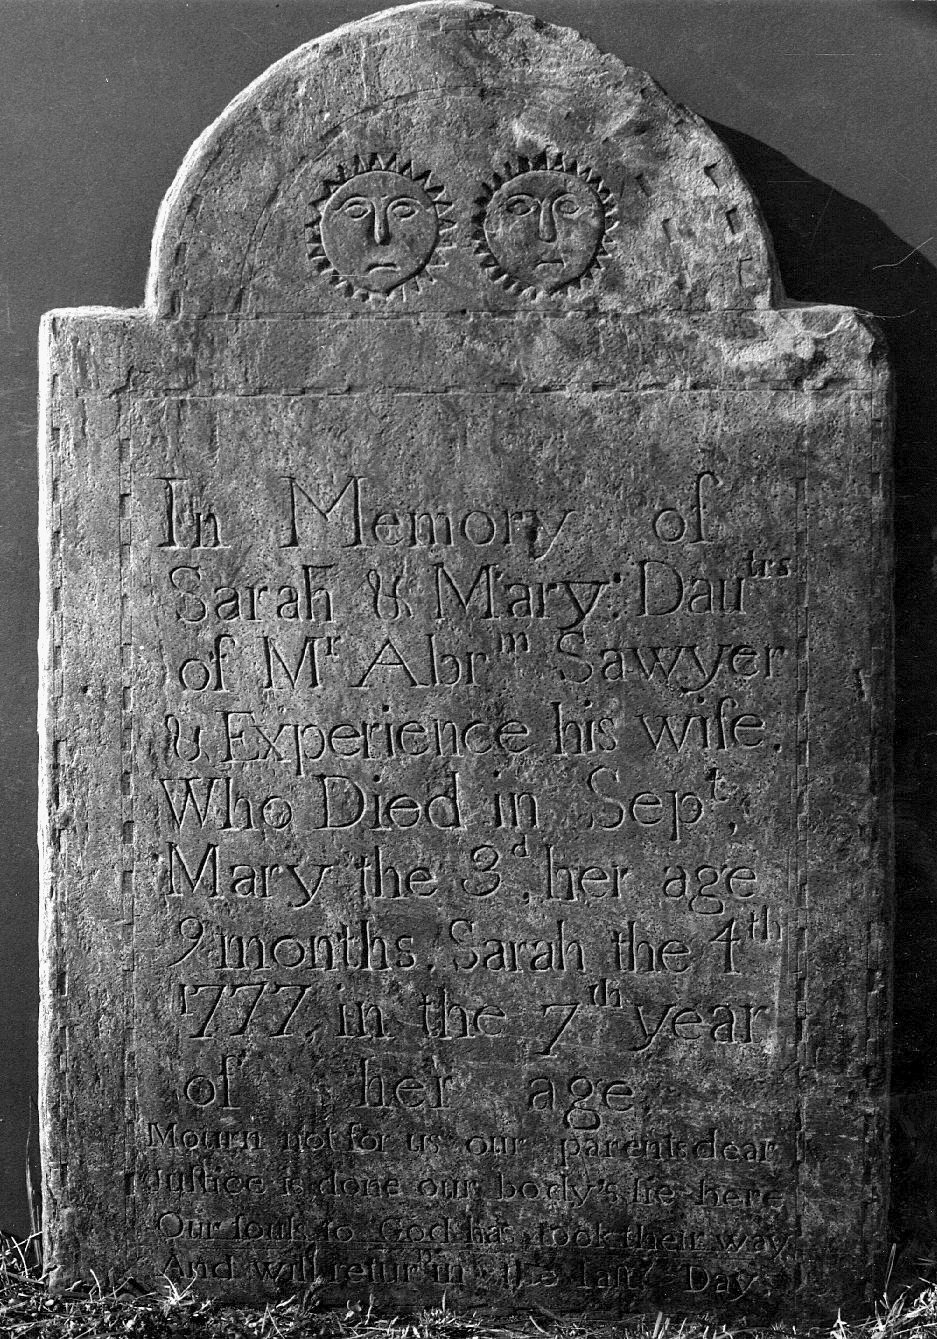 In Memory of
Sarah & Mary: Dautrs
of Mr Abrm Sawyer
& Experience his wife.
Who Died in Sept.,
Mary the 3d, her age
9 months, Sarah the 4th
1777, in the 7th year
of her age
Mourn not for us our parents dear
Juſtice is done our body's lie here
Our ſouls to God has took their way
And will return in the laſt Day,